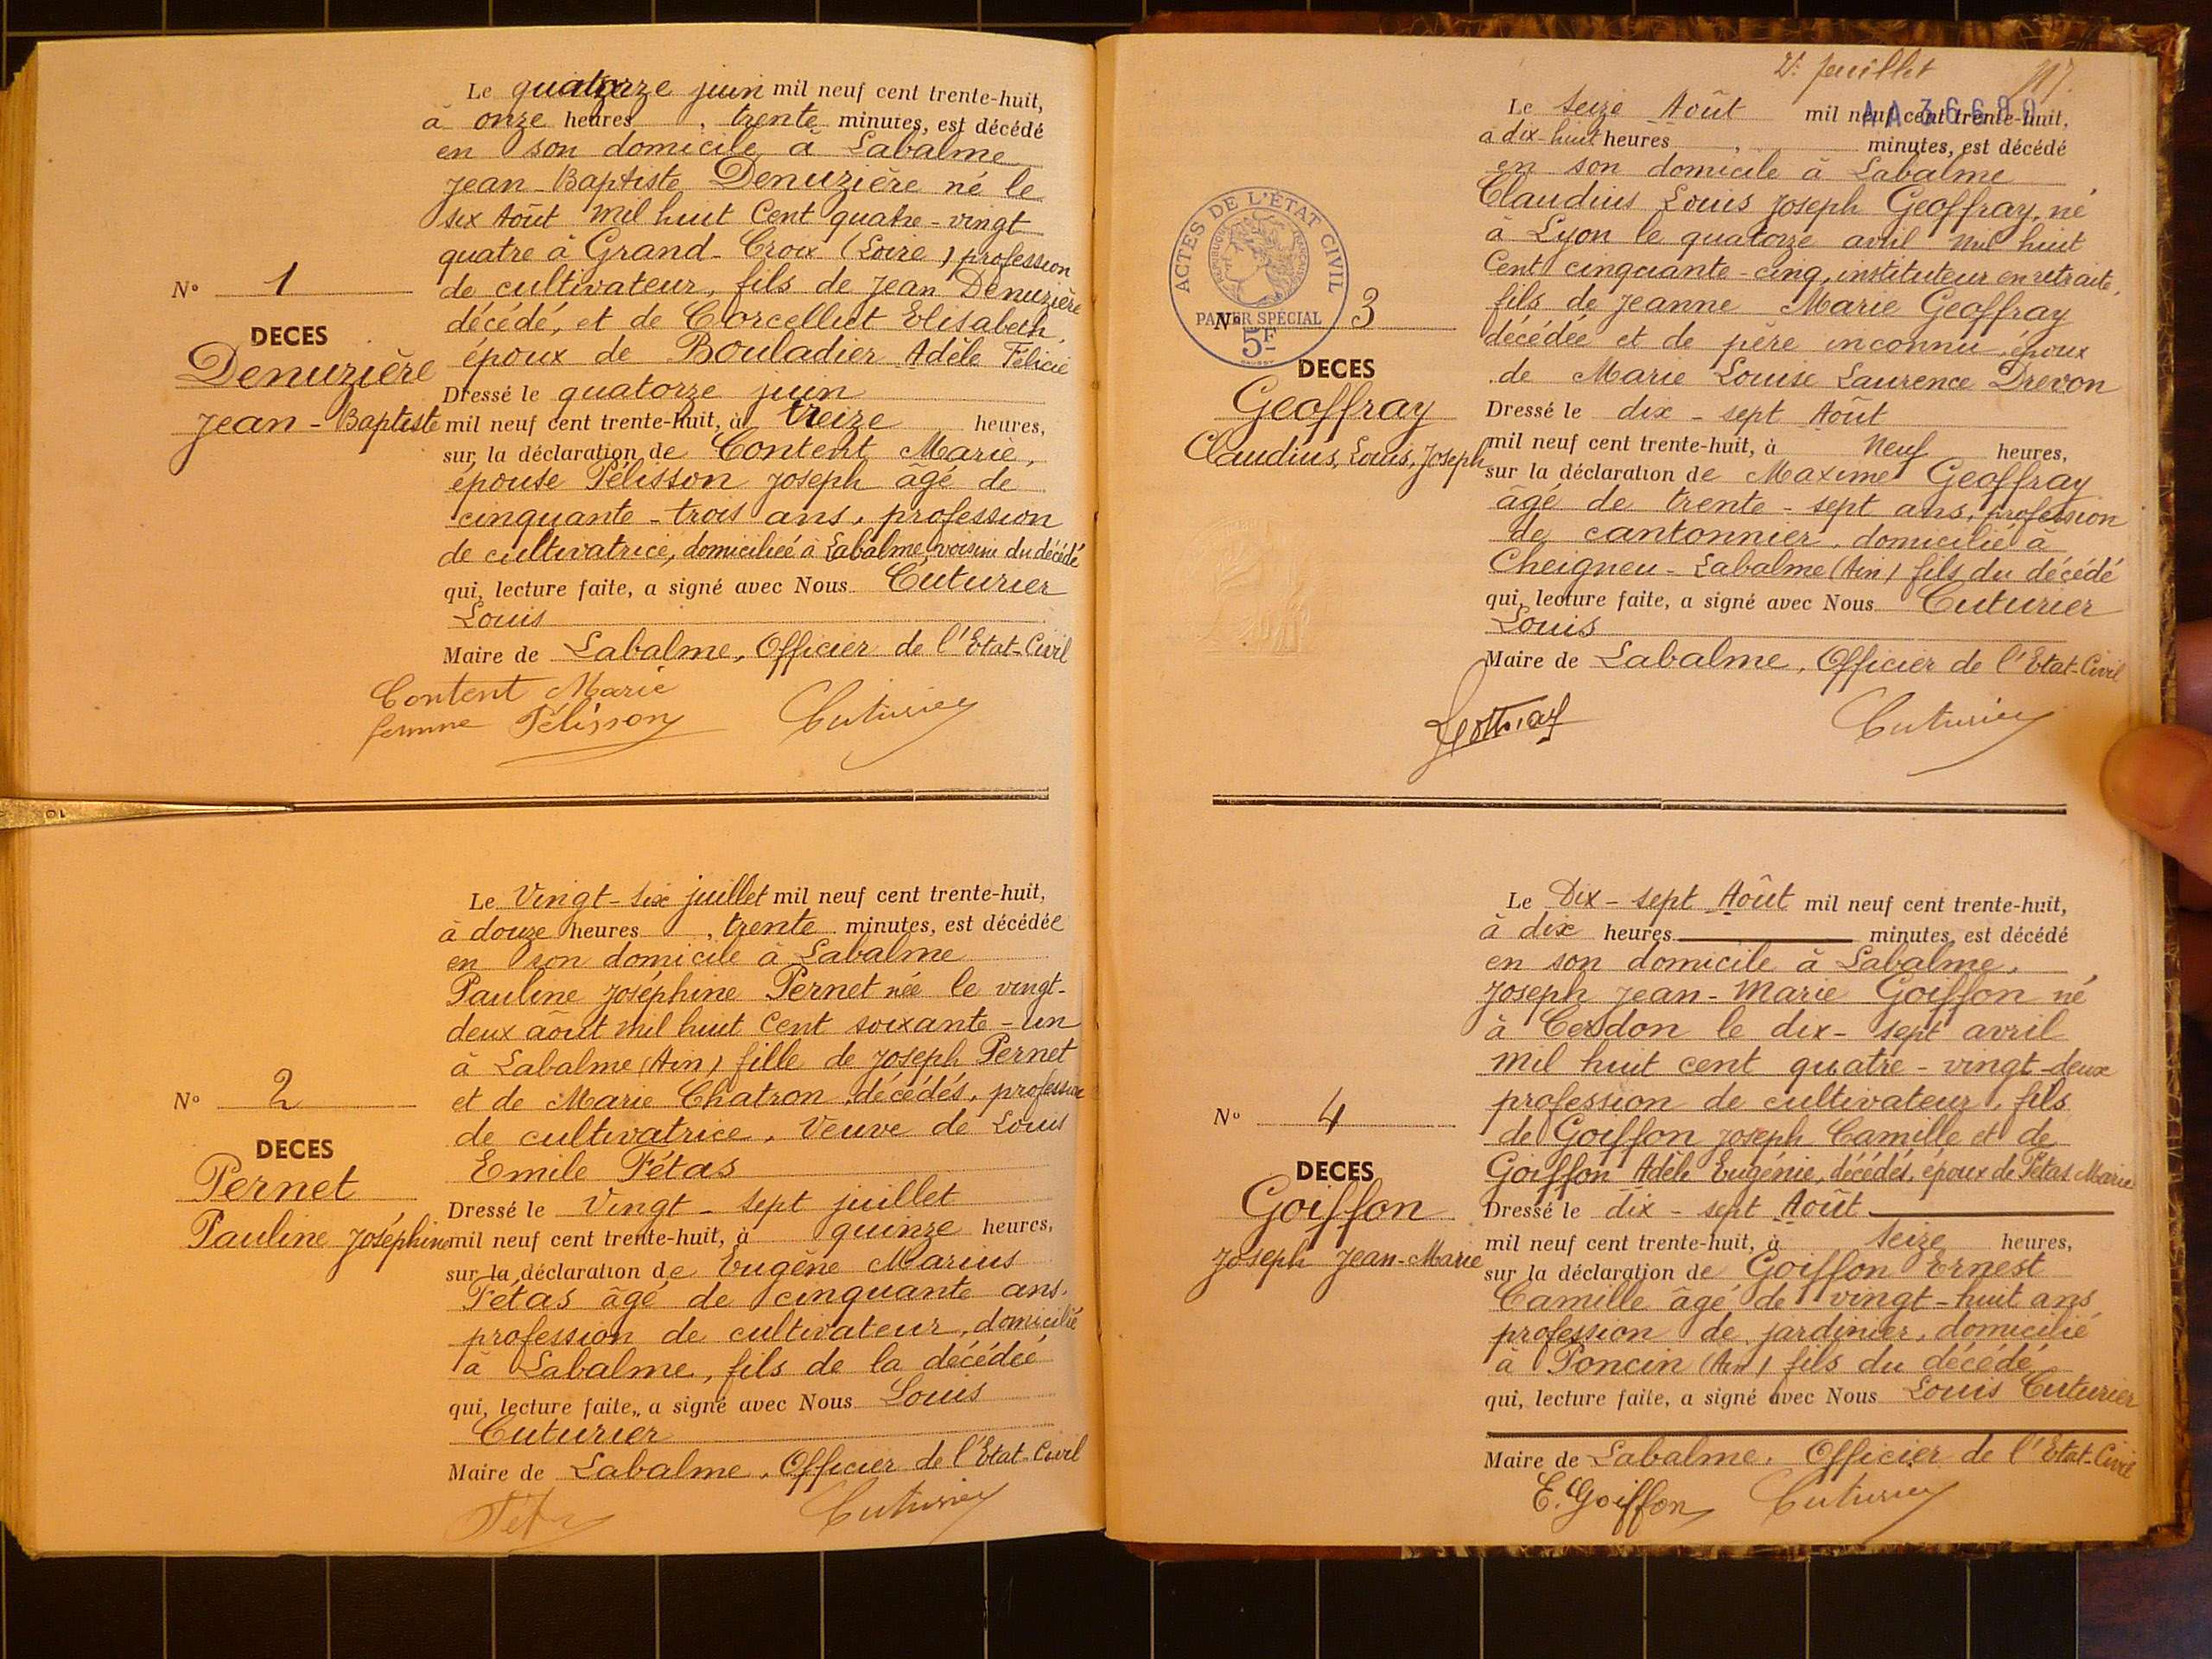 Le quatorze juin mil neuf cent trente-huit,
à onze heures, trente minutes, est décédé
en son domicile à Labalme
Jean-Baptiste Denuzière né le
six Août mil huit Cent quatre-vingt
quatre à Grand-Croix (Loire) profession
de cultivateur, fils de Jean Denuzière
décédé, et de Corcellict Elisabeth,
époux de Bouladier Adèle Félicie
N° 1
DECES
Denuzière
Jean-Baptiste
Dressé le quatorze juin
mil neuf cent trente-huit, à treize heures,
sur la déclaration de Content Marie,
épouse Pélisson Joseph âgé de
cinquante-trois ans, profession
de cultivatrice, domiciliée à Labalme, voisine du décédé
qui, lecture faite, a signé avec Nous Cuturier
Louis
Maire de Labalme, Officier de l'Etat-Civil
Content Marie
femme Pélisson
Cuturier
Le Vingt-six juillet mil neuf cent trente-huit,
à douze heures, trente minutes, est décédée
en son domicile à Labalme
Pauline Joséphine Pernet née le vingt-
deux août mil huit Cent soixante-un
à Labalme (Ain) fille de Joseph Pernet
et de Marie Chatron, décédés, profession
de cultivatrice, Veuve de Louis
Emile Fétas
N° 2
DECES
Pernet
Pauline Joséphine
Dressé le Vingt-sept juillet
mil neuf cent trente-huit, à quinze heures,
sur la déclaration de Eugène Marius
Fétas âgé de cinquante ans,
profession de cultivateur, domicilié
à Labalme, fils de la décédée
qui, lecture faite, a signé avec Nous Louis
Cuturier
Maire de Labalme, Officier de l'Etat-Civil
Cuturier
2e feuillet
Le Seize Août mil neuf cent trente-huit,
à dix-huit heures, minutes, est décédé
en son domicile à Labalme
Claudius Louis Joseph Geoffray, né
à Lyon le quatorze avril mil huit
Cent cinquante-cinq, instituteur en retraite,
fils de Jeanne Marie Geoffray
décédée et de père inconnu, époux
de Marie Louise Laurence Drevon
ACTES DE L'ÉTAT CIVIL
RÉPUBLIQUE FRANÇAISE
PAPIER SPÉCIAL
5F
N° 3
DECES
Geoffray
Claudius, Louis, Joseph
Dressé le dix-sept Août
mil neuf cent trente-huit, à Neuf heures,
sur la déclaration de Maxime Geoffray
âgé de trente-sept ans, profession
de cantonnier, domicilié à
Cheigneu-Labalme (Ain) fils du décédé
qui, lecture faite, a signé avec Nous Cuturier
Louis
Maire de Labalme, Officier de l'Etat-Civil
Geoffray
Cuturier
Le Dix-sept Août mil neuf cent trente-huit,
à dix heures minutes, est décédé
en son domicile à Labalme,
Joseph Jean-Marie Goiffon né
à Cerdon le dix-sept avril
mil huit cent quatre-vingt-deux
profession de cultivateur, fils
de Goiffon Joseph Camille et de
Goiffon Adèle Eugénie, décédés, époux de Fétas Marie
N° 4
DECES
Goiffon
Joseph Jean-Marie
Dressé le dix-sept Août
mil neuf cent trente-huit, à seize heures,
sur la déclaration de Goiffon Ernest
Camille âgé de vingt-huit ans
profession de jardinier, domicilié
à Poncin (Ain) fils du décédé
qui, lecture faite, a signé avec Nous Louis Cuturier
Maire de Labalme, Officier de l'Etat-Civil
E. Goiffon
Cuturier